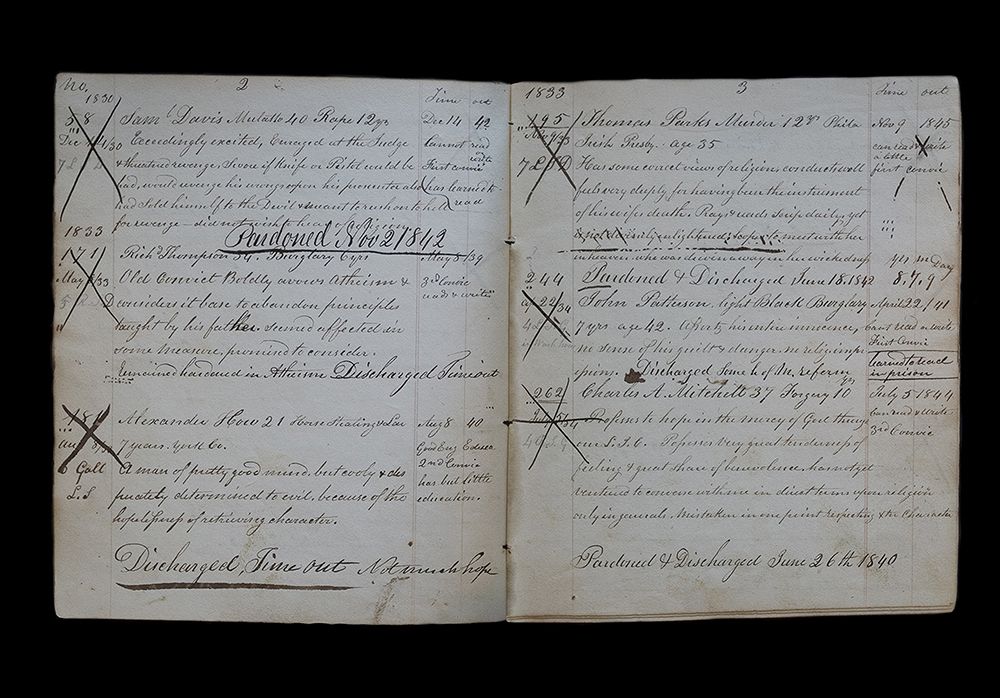 No. 2 Time out
1830
58 Sam'l Davis Mulatto 40 Rape 12 yrs Dec 14 42
Dec 14/30 Exceedingly excited, Enraged at the Judge Cannot read
7 L & threatened revenge, Swore if Knife or Pistol could be write First convic
had, would revenge his wrongs upon his prosecutor also has learned to
had Sold himself to the Devil & meant to rush on to hell read
for revenge - did not wish to hear of Religion
1833 Pardoned Nov 2 1842
171 Rich'd Thompson 34 Burglary 6 yrs May 8 /39
May 8/33 Old Convict Boldly avows Atheism & 3rd Convic
5 considers it base to abandon principles reads & writes
taught by his father. seemed affected in
some measure, promised to consider.
Remained hardened in Atheism Discharged Time out
Alexander How 21 Horse Stealing & Lar Aug 8 40
Aug 7 years. York Co. Good Eng Educa
6 Gall A man of pretty good mind, but cooly & des 2nd Convic
L.S perately determined to evil, because of the has but little
hopelessness of retrieving character. education.
Discharged, Time out Not much hope
1833 3 Time out
195 Thomas Parks Murder 12 yrs Phila Nov 9 1845
Nov 9/33 Irish Presby. age 35 can read & write
7 L D Has some correct views of religion, conducts well a little
feels very deeply for having been the instrument first convic
of his wifes death. Prays & reads Scrip daily, yet
is not enlightened; hopes to meet with her
in heaven who was driven away in her wickedness yrs m Day
244 Pardoned & Discharged June 18. 1842 8, 7, 9
22/34 John Patterson light Black Burglary April 22 /41
4 7 yrs age 42. Asserts his entire innocence, Cant read or write
no sense of his guilt & danger. no religious First Convic
opins. Discharged Some h of reform learned to read
in prison
262 Charles A. Mitchell 37 Forgery 10 yrs July 5 1844
July 5/34 Professes to hope in the mercy of God through Can read & write
our L.J.C. Possesses very great tenderness of 3rd Convic
feeling & great share of benevolence, has not yet
ventured to converse with me in direct terms upon religion
only in generals. Mistaken in one point respecting Character
Pardoned & Discharged June 26th 1840